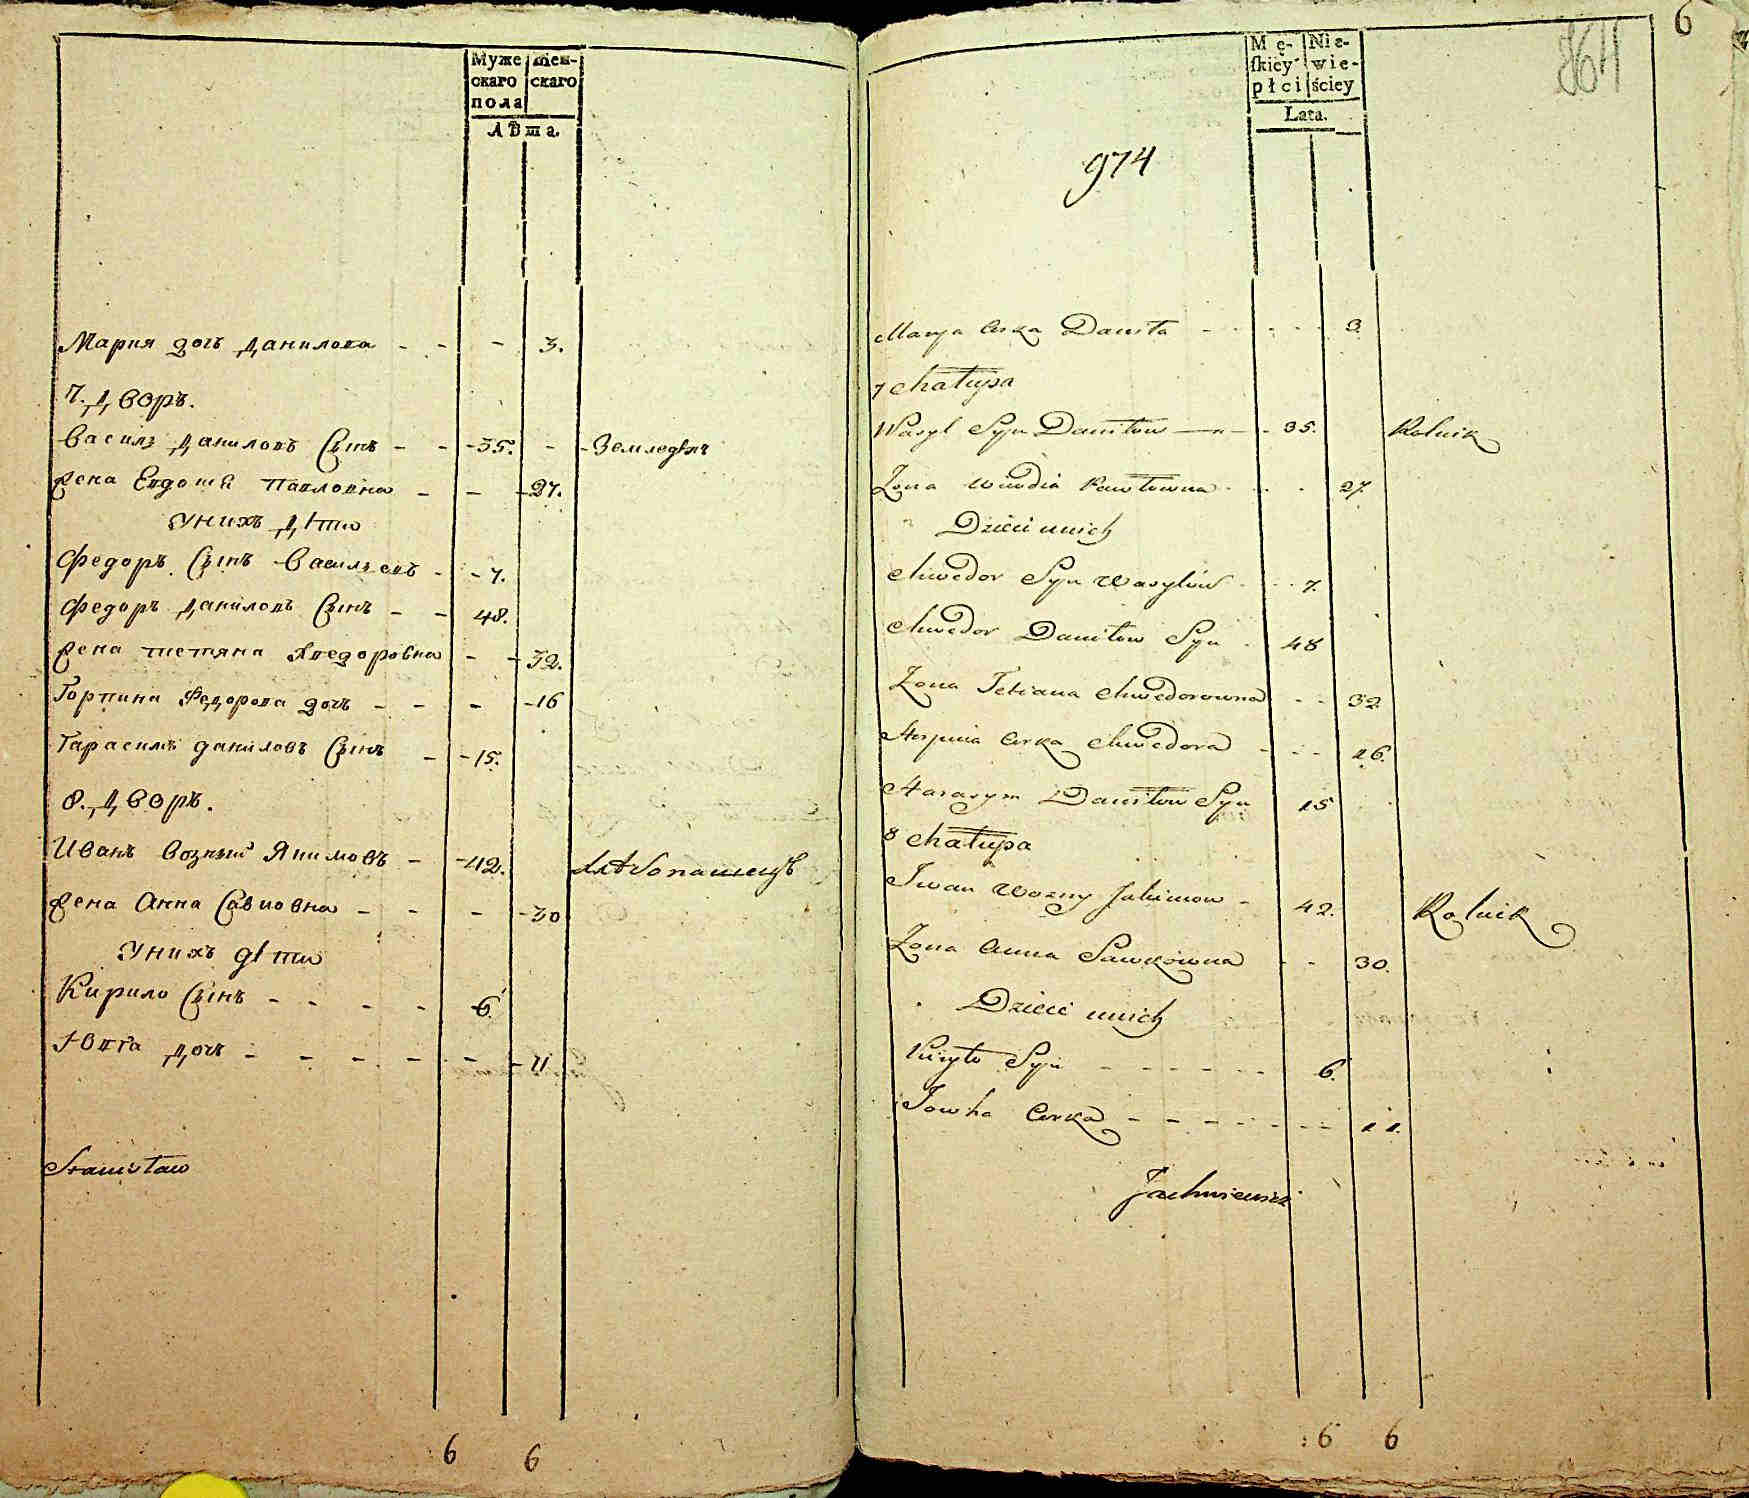 Муже
скаго
пола
Жен-
скаго
Лѣта.
Мария дочь Данилова - - - 3.
7. Дворъ.
Василь Даниловъ Сынъ - - - 35. - - Земледѣлъ
Жена Евдотя Павловна - - - 27.
У нихъ Дѣти
Федоръ Сынъ Васильевъ - - 7.
Федоръ Даниловъ Сынъ - - 48.
Жена Тетяна Хведоровна - - 32.
Горпина Федорова дочь - - - - 16
Гарасимъ Даниловъ Сынъ - - 15.
8. Дворъ.
Иванъ Возный Якимовъ - - 42. Хлѣбопашецъ
Жена Анна Савковна - - - - 30
У нихъ дѣти
Кирило Сынъ - - - - 6.
Ювга Дочь - - - - - - 11
Stanisław
6 6
6
864
Mę-
skiey
płci
Nie-
wie-
ściey
Lata.
974
Marya Curka Daniła - - - - - 3
7 Chałupa
Wasyl Syn Daniłow - - - 35. Rolnik
Żona Pawłowna - - - 27.
Dzieci unich
Chwedor Syn Wasylów - - - 7.
Chwedor Daniłow Syn - 48
Żona Tetiana Chwedorowna - - 32
Horpina Curka Chwedora - - - 16.
Harasym Daniłow Syn 15
8 Chałupa
Iwan Wozny Jakimow - 42. Rolnik
Żona Anna Sawkowna - - 30.
Dzieci unich
Kiryło Syn - - - - - - 6.
Jowha Curka - - - - - - - 11.
Jachniewicz
6 6